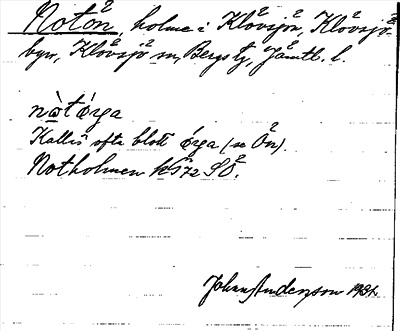 Notön, holme i Klövsjön, Klövsjö-
byn, Klövsjö sn, Bergs tg, Jämtl. l.
nòt órga
Kallas ofta blott órga (se Ön).
Notholmen k 572 SÖ.
Johan Anderzson 1934.